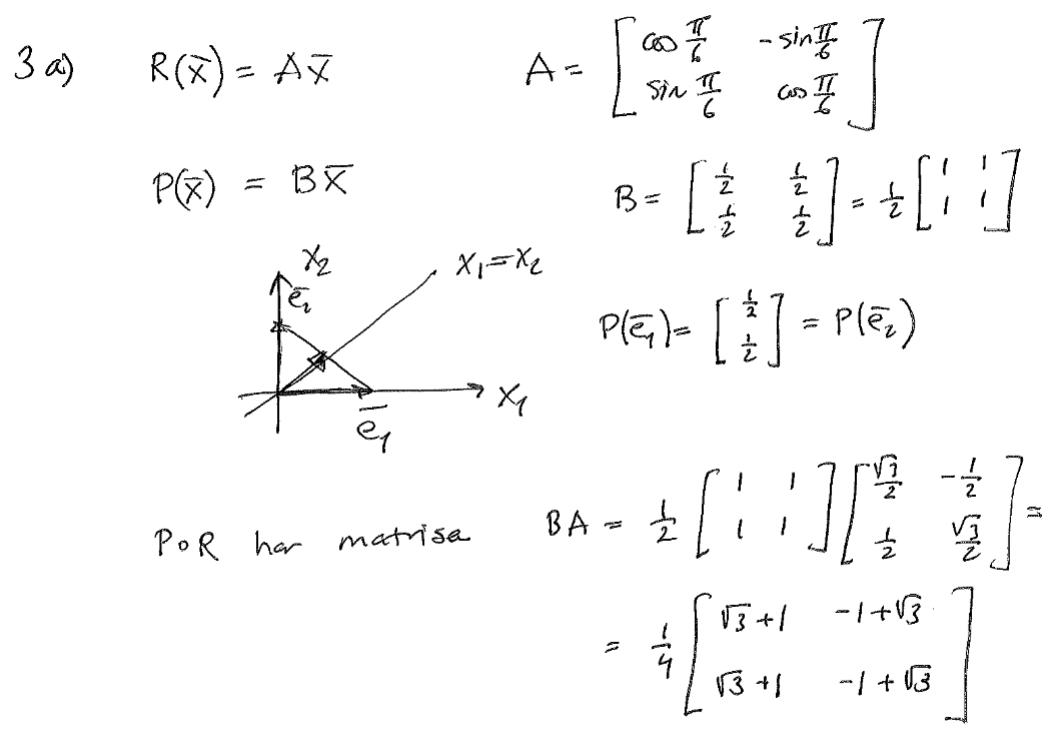 3 a) R(x̄) = Ax̄ A = [cos π/6 -sin π/6; sin π/6 cos π/6]
P(x̄) = Bx̄ B = [1/2 1/2; 1/2 1/2] = 1/2 [1 1; 1 1]
x₂
ē₂
x₁=x₂
x₁
ē₁
P(ē₁) = [1/2; 1/2] = P(ē₂)
P∘R har matrisa BA = 1/2 [1 1; 1 1] [√3/2 -1/2; 1/2 √3/2] =
= 1/4 [√3+1 -1+√3; √3+1 -1+√3]